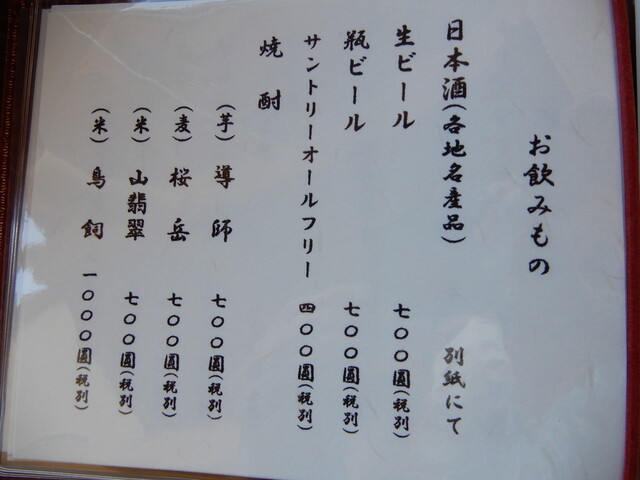 お飲みもの
日本酒(各地名産品) 別紙にて
生ビール 七〇〇圓(税別)
瓶ビール 七〇〇圓(税別)
サントリーオールフリー 四〇〇圓(税別)
焼酎
(芋) 導師 七〇〇圓(税別)
(麦) 桜岳 七〇〇圓(税別)
(米) 山翡翠 七〇〇圓(税別)
(米) 鳥飼 一〇〇〇圓(税別)